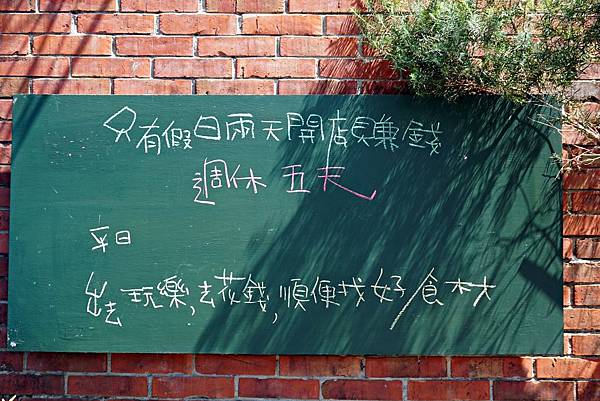 只有假日兩天開店賺錢
週休 五天
平日
出去玩樂,去花錢,順便找好食材